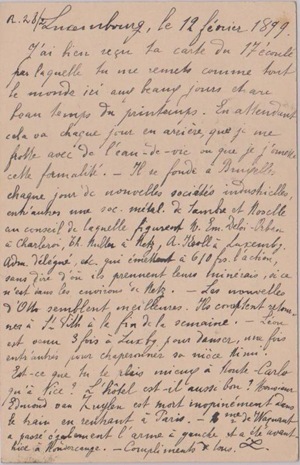 R. 23/2 Luxembourg, le 12 février 1899.
J'ai bien reçu ta carte du 17 écoulé
par laquelle tu me remets comme tout
le monde ici aux beaux jours et au
beau temps du printemps. En attendant
cela va chaque jour en arrière, que je me
frotte avec de l'eau-de-vie ou que je
cette formalité. — Il se fonde à Bruxelles
chaque jour de nouvelles sociétés industrielles,
entr'autres une soc. métal. de Sambre et Moselle
au conseil de laquelle figurent M. Em.
à Charleroi, Th. Müller à Metz, A. à Luxembg.
adm. délégué, etc. qui émettent à 610 frs. l'action,
sans dire d'où ils prennent leurs minerais, si ce
n'est dans les environs de Metz. — Les nouvelles
d'Otto semblent meilleures. Ils comptent retour-
ner à St. Vith à la fin de la semaine. — Léon
est venu 3 fois à Luxbg pour danser, une fois
entr'autres pour chaperonner sa nièce Mimi.
Est-ce que tu te plais mieux à Monte-Carlo
qu'à Nice? L'hôtel est-il aussi bon? Monsieur
Edmond van Zuylen est mort inopinément dans
le train en rentrant à Paris. — Mme de
a passé également l'arme à gauche et a été
à — Compliments à tous.